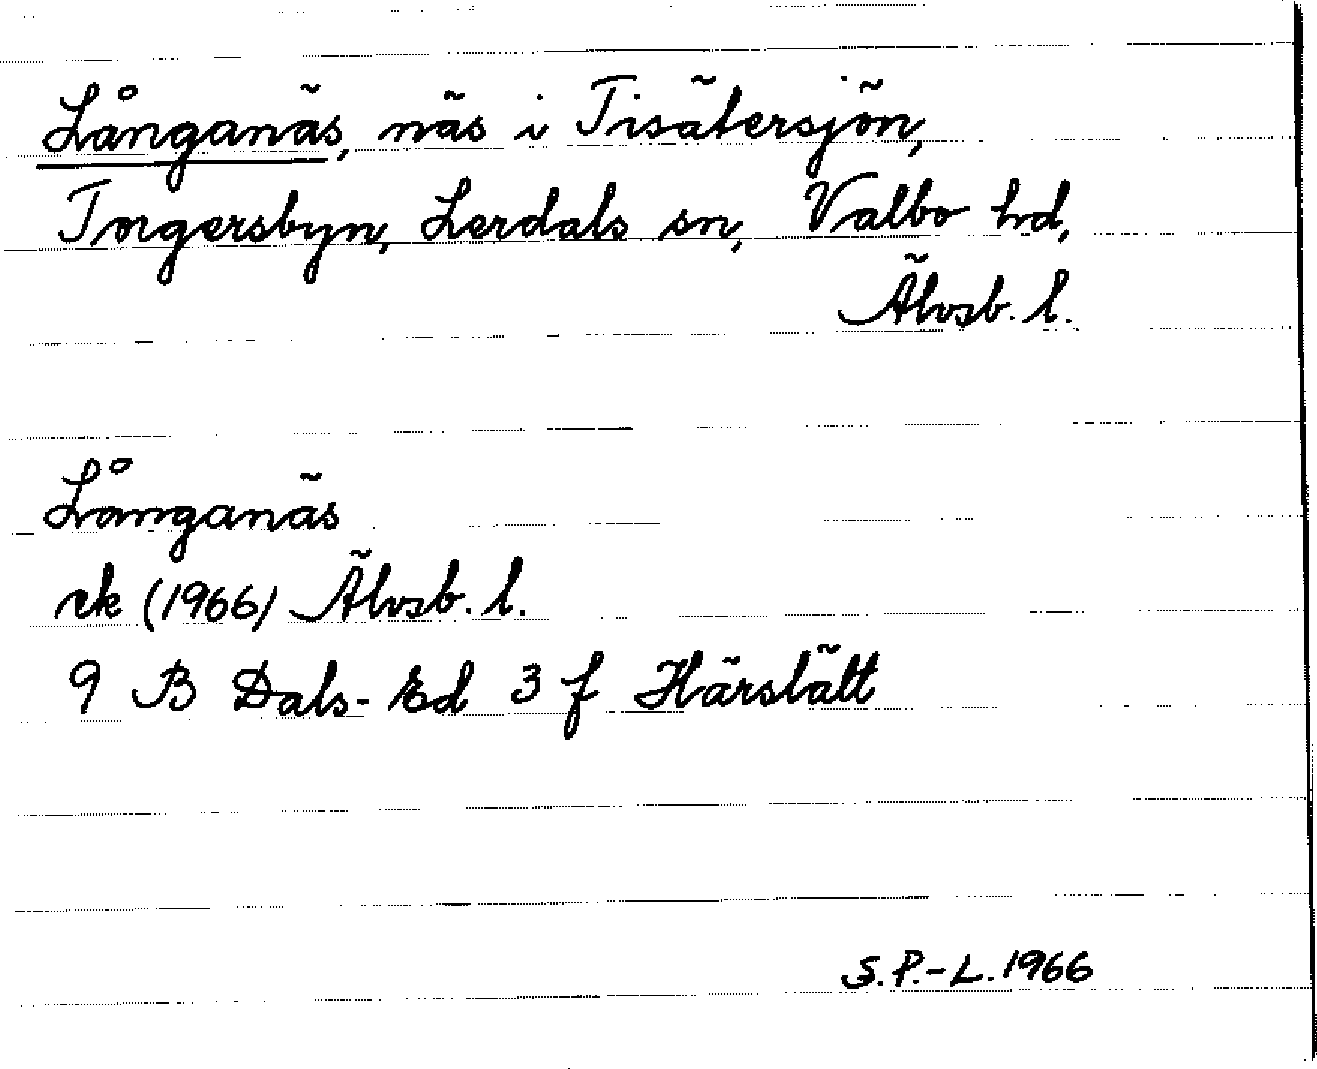 Långanäs, näs i Tisätersjön,
Torgersbyn, Lerdals sn, Valbo hd,
Älvsb. l.
Långanäs
ek (1966) Älvsb. l.
9 B Dals-Ed 3 f Härslätt
S.P.-L. 1966